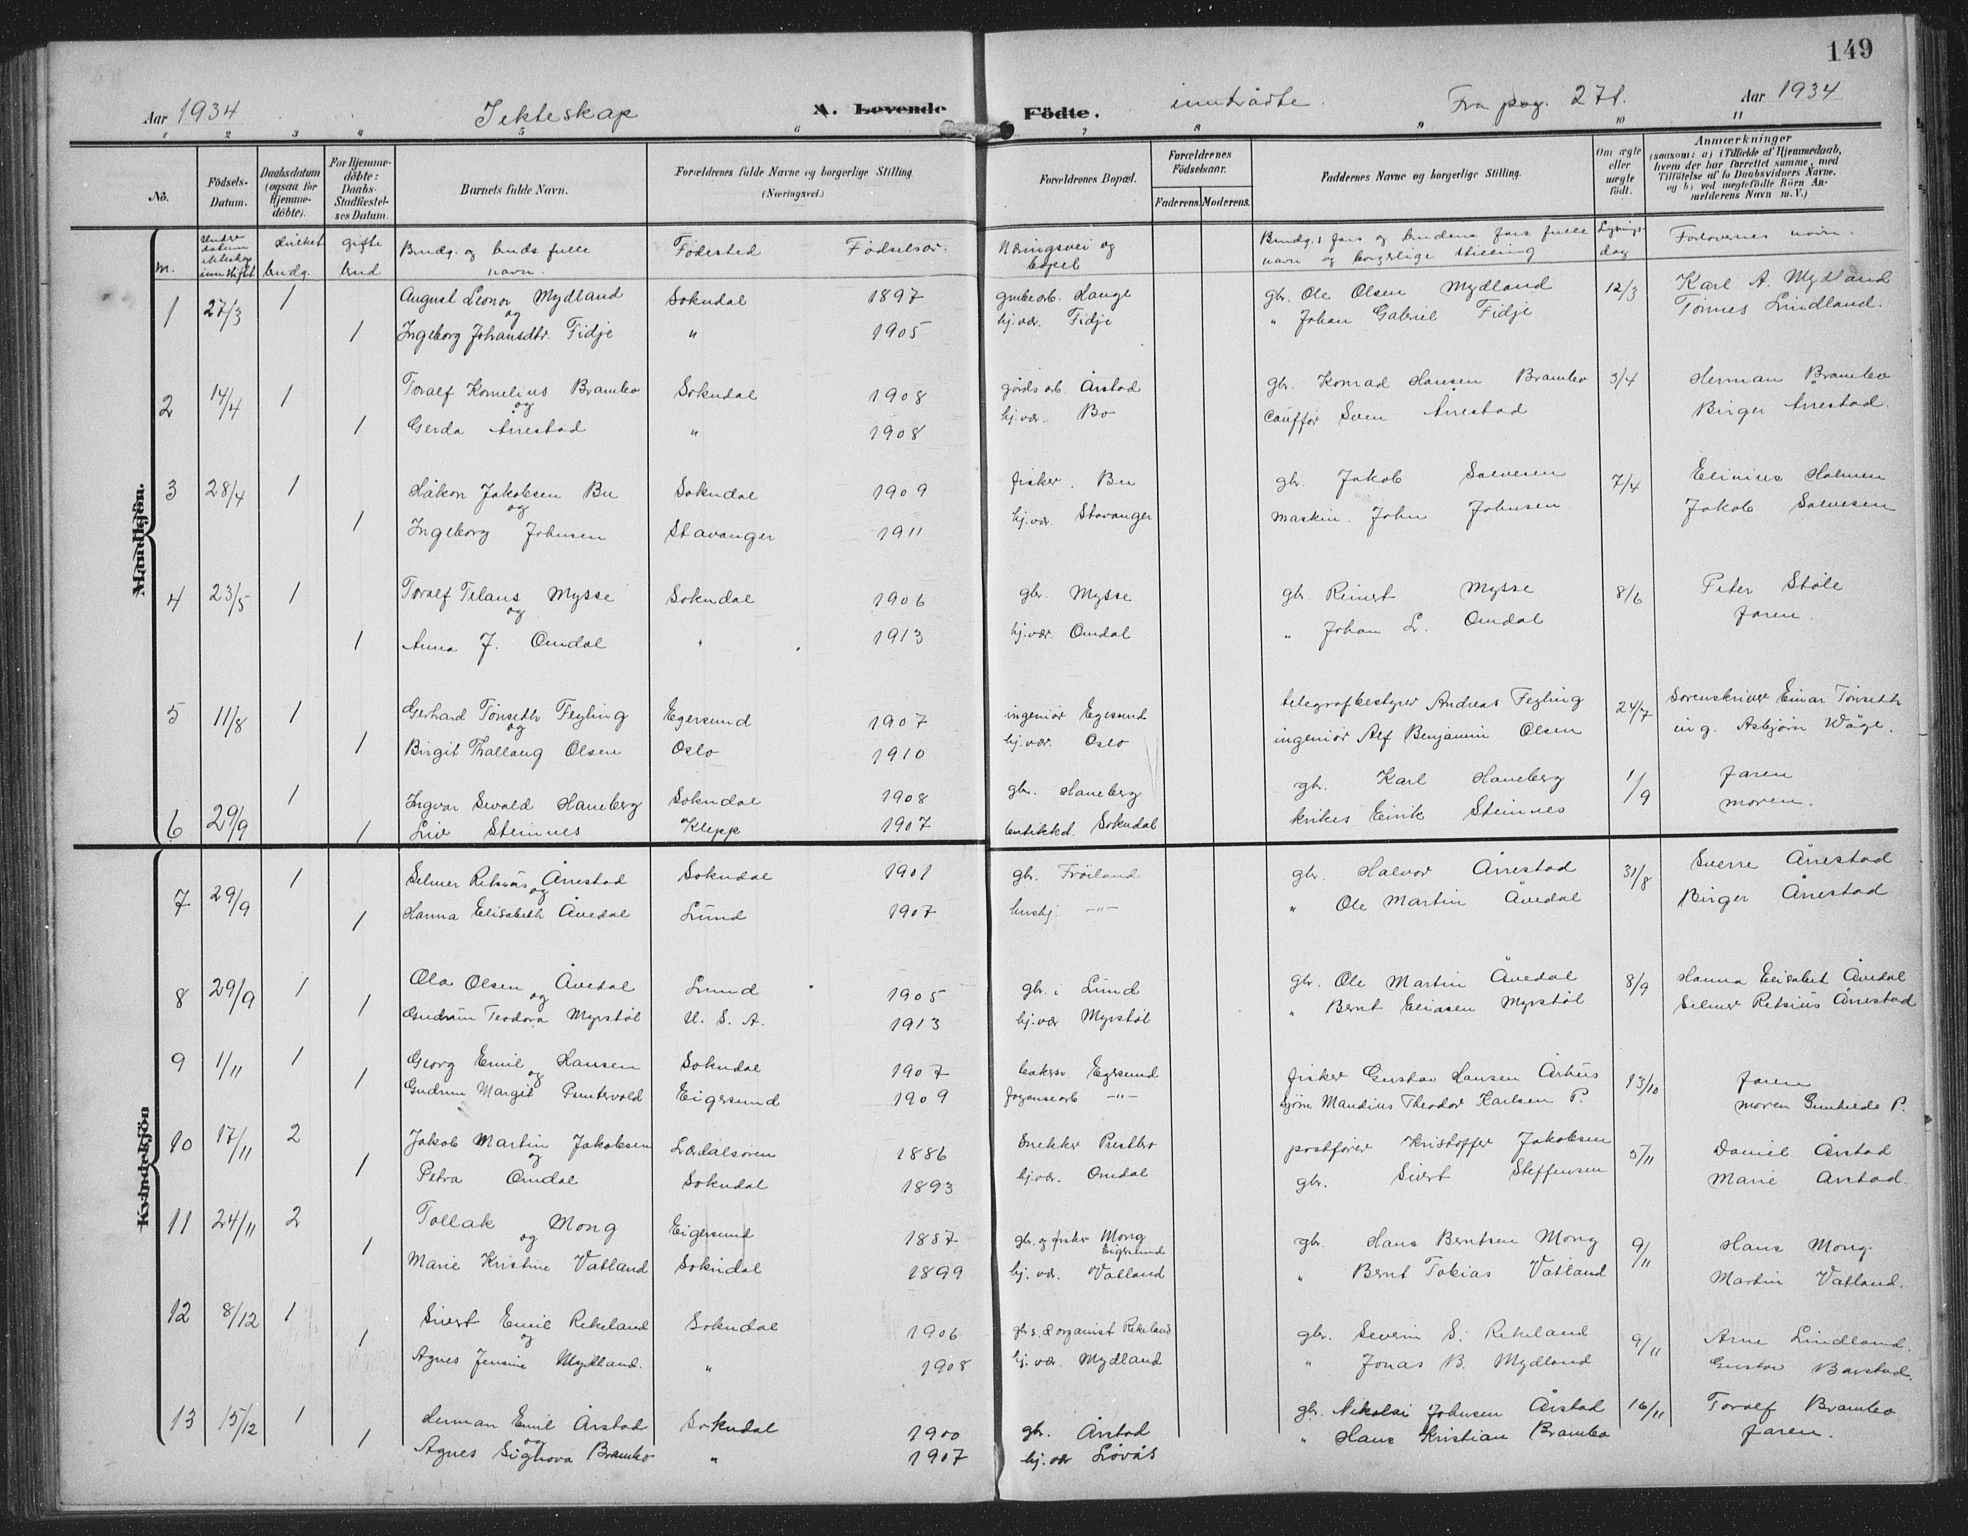 149
Aar 1934 Ekteskap A. Levende Födte. inntrådte. Fra pag. 271. Aar 1934
1 2 3 4 5 6 7 8 9 10 11
No. Födsels-Datum. Daabsdatum (ogsaa for Hjemme-döbte). For Hjemme-döbte: Daabs-Stadfæstel-ses Datum. Barnets fulde Navn. Forældrenes fulde Navne og borgerlige Stilling (Næringsvei.) Forældrenes Bopæl. Forældrenes Födselsaar. Faderens. Moderens. Faddernes Navne og borgerlige Stilling. Om ægte eller uægte födt. Anmærkninger (saasom: a) i Tilfælde af Hjemmedaab, hvem der har forrettet samme, med Tilföielse af to Daabsvidners Navne, og b) ved uægtefödte Börn An-melderens Navn m. V.)
gifte Brudg. og bruds fulle navn. Fødested Fødselsår. Næringsvei og bopel Brudg.s fars og brudens fars fulle navn og borgerlige stilling Lysnings-dag Forlovernes navn.
brudg. brud
Mandkjön.
1 27/3 1 August Leonor Mydland Sokndal 1897 grubearb. Hauge gbr. Ole Olsen Mydland 12/3 Karl A. Mydland
og
1 Ingeborg Johansdtr. Fidje " 1905 hj.vær. Fidje " Johan Gabriel Fidje Tønnes Lindland.
2 14/4 1 Toralf Kornelius Brambo Sokndal 1908 gårdsarb. Årstad gbr. Konrad Hansen Brambo 3/4 Herman Brambo
og
1 Gerda Årrestad " 1908 hj.vær. Bo Sven Årrestad Birger Årrestad.
3 28/4 1 Håkon Jakobsen Bu Sokndal 1909 fisker. Bu gbr. Jakob Salvesen 7/4 Holmen
og
1 Ingeborg Johnsen Stavanger 1911 hj.vær. Stavanger maskin. John Johnsen Jakob Salvesen
4 23/5 1 Toralf Mysse Sokndal 1906 gbr. Mysse gbr. Reinert Mysse 8/6 Peter Støle
og
1 Anna J. Omdal " 1913 hj.vær. Omdal " Johan L. Omdal Faren.
5 11/8 1 Gerhard Tønseth Feyling Egersund 1907 ingeniør Egersund telegrafbestyrer Andreas Feyling 24/7 Sorenskriver Einar Tønseth
og
1 Birgit Thallaug Olsen Oslo 1910 hj.vær. Oslo ingeniør Alf Benjamin Olsen ing. Asbjørn Våge.
6 29/9 1 Ingvar Sevald Haneberg Sokndal 1908 gbr. Haneberg gbr. Karl Haneberg 1/9 Faren
1 Liv Steinnes Klepp 1907 butikkd. Sokndal Eirik Steinnes moren.
Kvindekjön
7 29/9 1 Selmer Retsius Årrestad Sokndal 1901 gbr. Frøiland gbr. Halvor Årrestad 31/8 Sverre Årrestad
og
1 Hanna Elisabeth Åvedal Lund 1907 hushj. -"- " Ole Martin Åvedal Birger Årrestad
8 29/9 1 Ola Olsen Åvedal Lund 1905 gbr. i Lund gbr. Ole Martin Åvedal 8/9 Hanna Elisabet Åvedal
og
1 Gudrun Teodora Myrstøl U. S. A. 1913 hj.vær Myrstøl " Bernt Eliasen Myrstøl Selmer Retsius Årrestad
9 1/11 1 Georg Emil Hansen Sokndal 1907 bakersv Egersund fisker Gustav Hansen Århus 13/10 Faren
og
1 Gudrun Margit Puntervold Eigersund 1909 fayansearb -"- Mandius Theodor Karlsen P. moren Gunhilde P.
10 17/11 2 Jakob Martin Jakobsen Lærdalsøren 1886 Snekker Prestbro postfører Kristoffer Jakobsen 5/11 Daniel Årstad
og
1 Petra Omdal Sokndal 1893 hj.vær. Omdal gbr. Sivert Steffensen Marie Årstad.
11 24/11 2 Tollak Mong Eigersund 1887 gbr. og fisker Mong Eigersund gbr. Hans Berntsen Mong 9/11 Hans Mong.
og
1 Marie Kristine Vatland Sokndal 1899 hj. vær. Vatland " Bernt Tobias Vatland Martin Vatland.
12 8/12 1 Sivert Emil Rekeland Sokndal 1906 gbr.s. & organist Rekeland gbr. Severin S. Rekeland 9/11 Arne Lindland.
og
1 Agnes Jensine Mydland. " 1908 hj. vær. Mydland " Jonas B. Mydland Gustav Barstad.
13 15/12 1 Herman Emil Årstad Sokndal 1900 gbr. Årstad gbr. Nikolai Johnsen Årstad 16/11 Toralf Brambo
og
1 Agnes Sighova Brambo " 1907 hj.vær Løvås " Hans Kristian Brambo Faren.